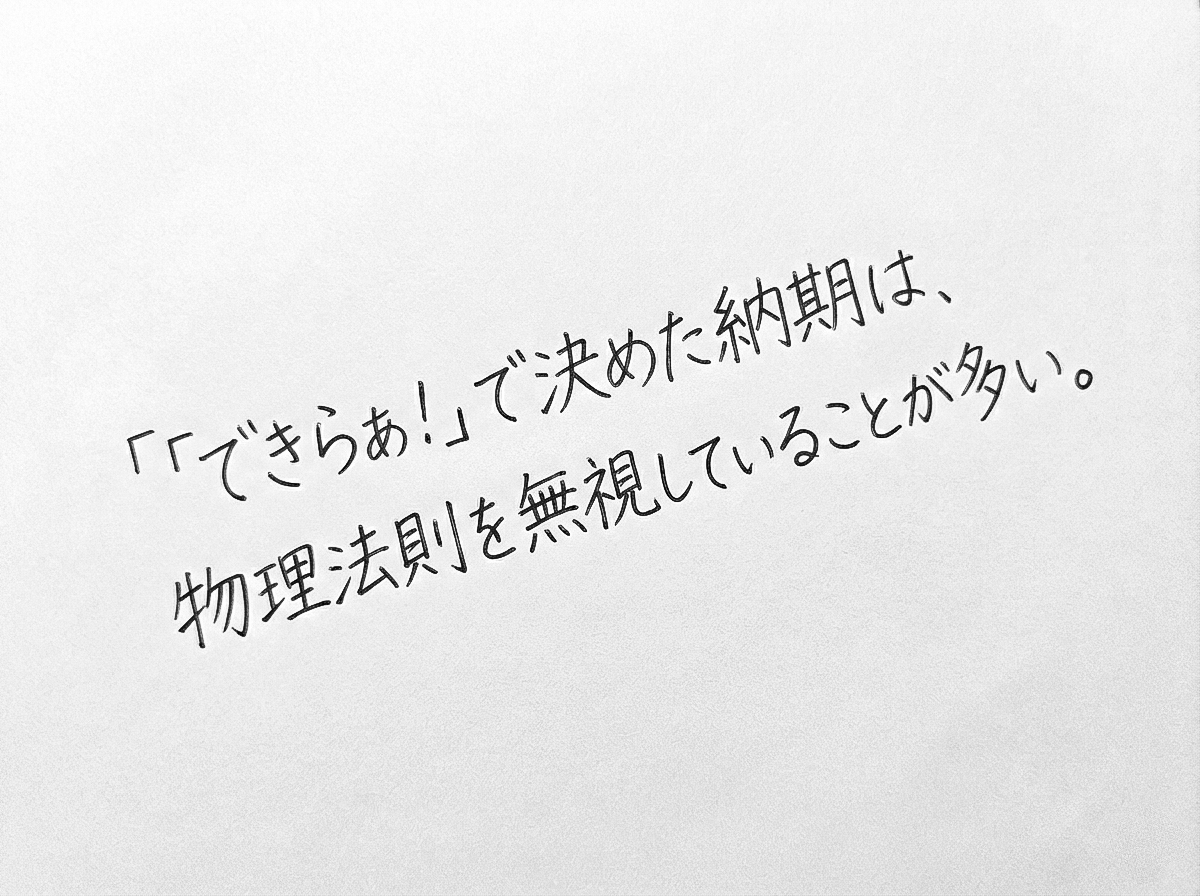 「「できらぁ！」で決めた納期は、
物理法則を無視していることが多い。